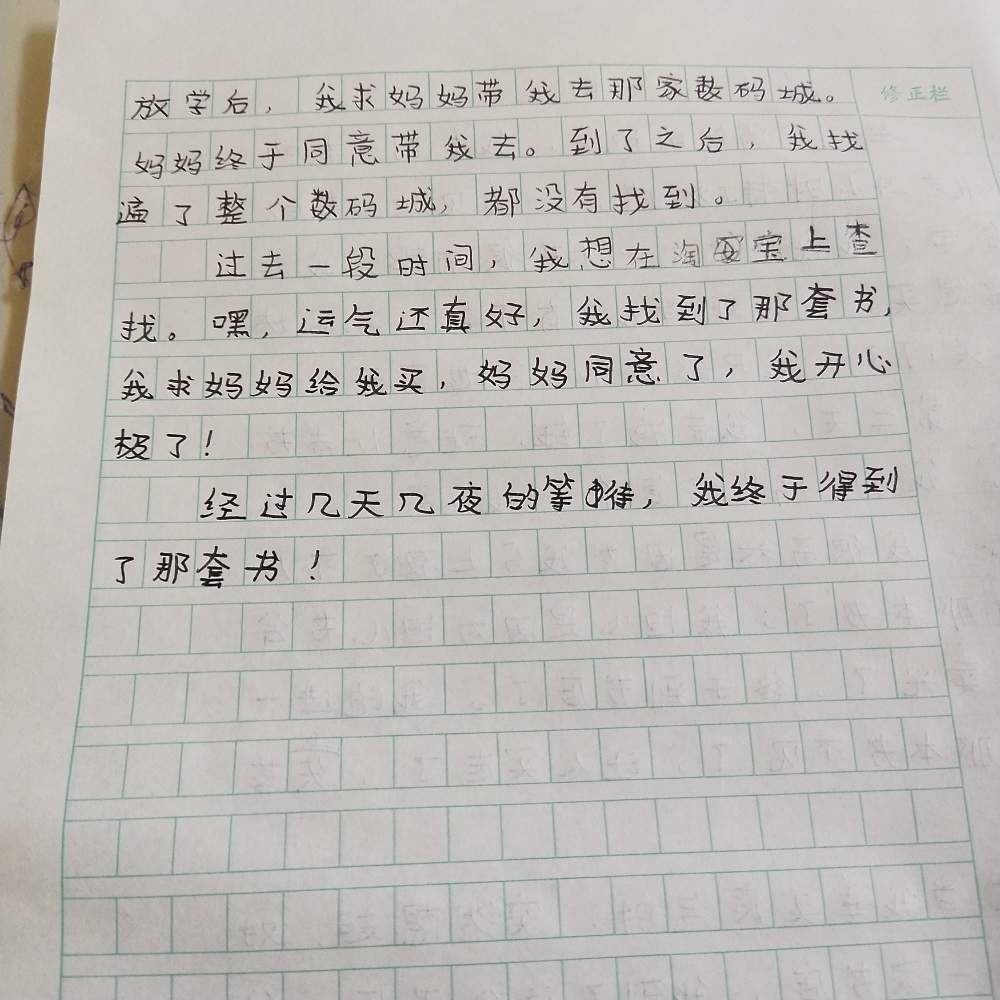 放学后，我求妈妈带我去那家数码城。
修正栏
妈妈终于同意带我去。到了之后，我找
遍了整个数码城，都没有找到。
过去一段时间，我想在淘宝上查
找。嘿，运气还真好，我找到了那套书，
我求妈妈给我买，妈妈同意了，我开心
极了！
经过几天几夜的等待，我终于得到
了那套书！